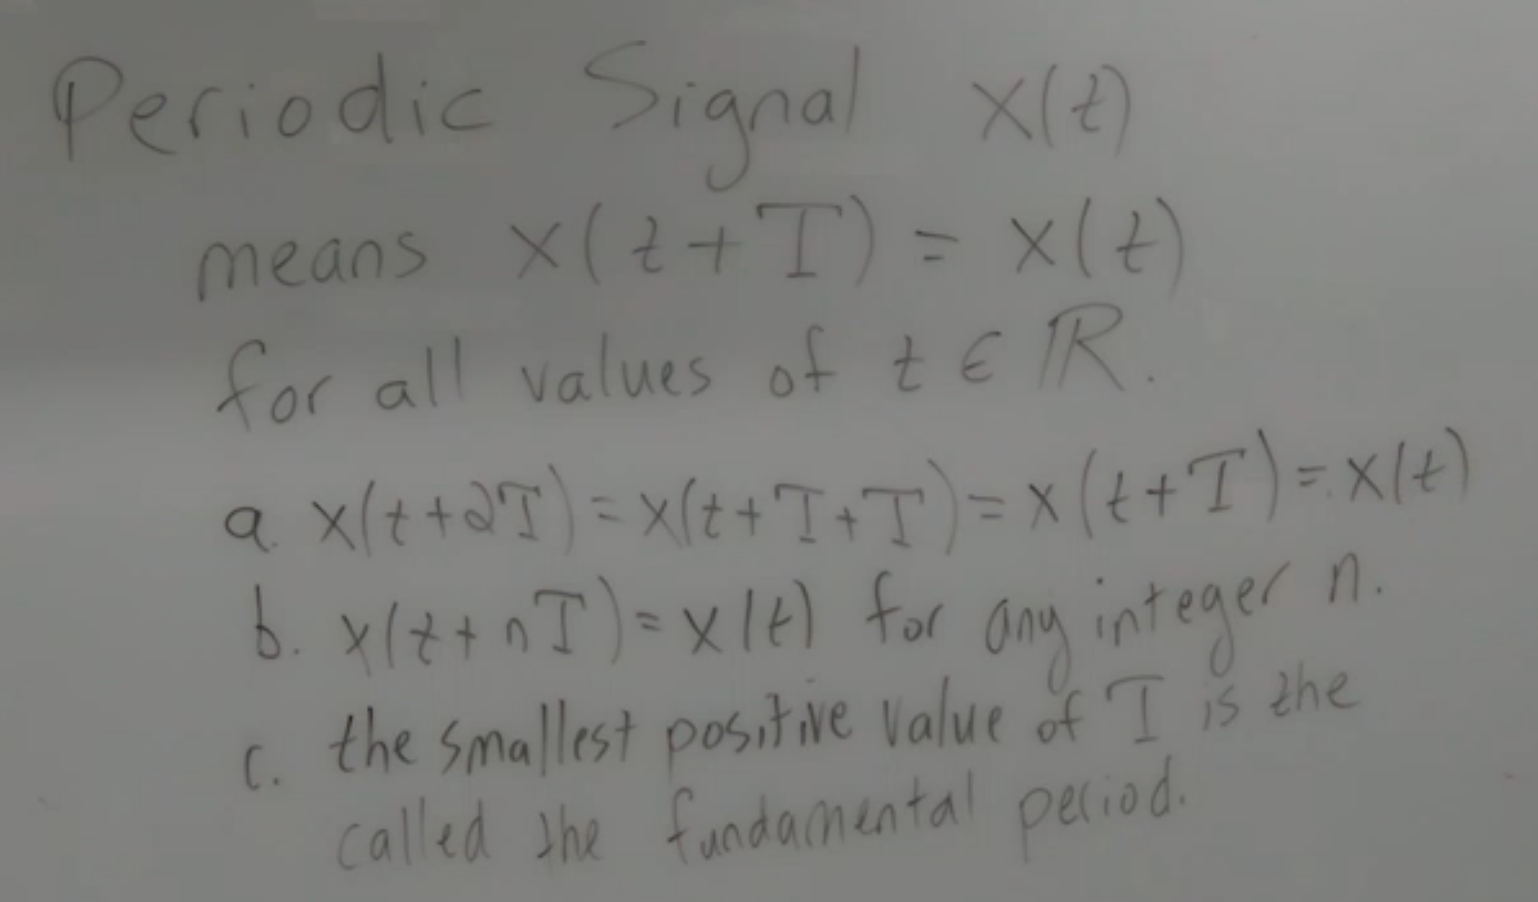 Periodic Signal x(t)
means x(t+T) = x(t)
for all values of t ∈ ℝ.
a. x(t+2T) = x(t+T+T) = x(t+T) = x(t)
b. x(t+nT) = x(t) for any integer n.
c. the smallest positive value of T is the
called the fundamental period.